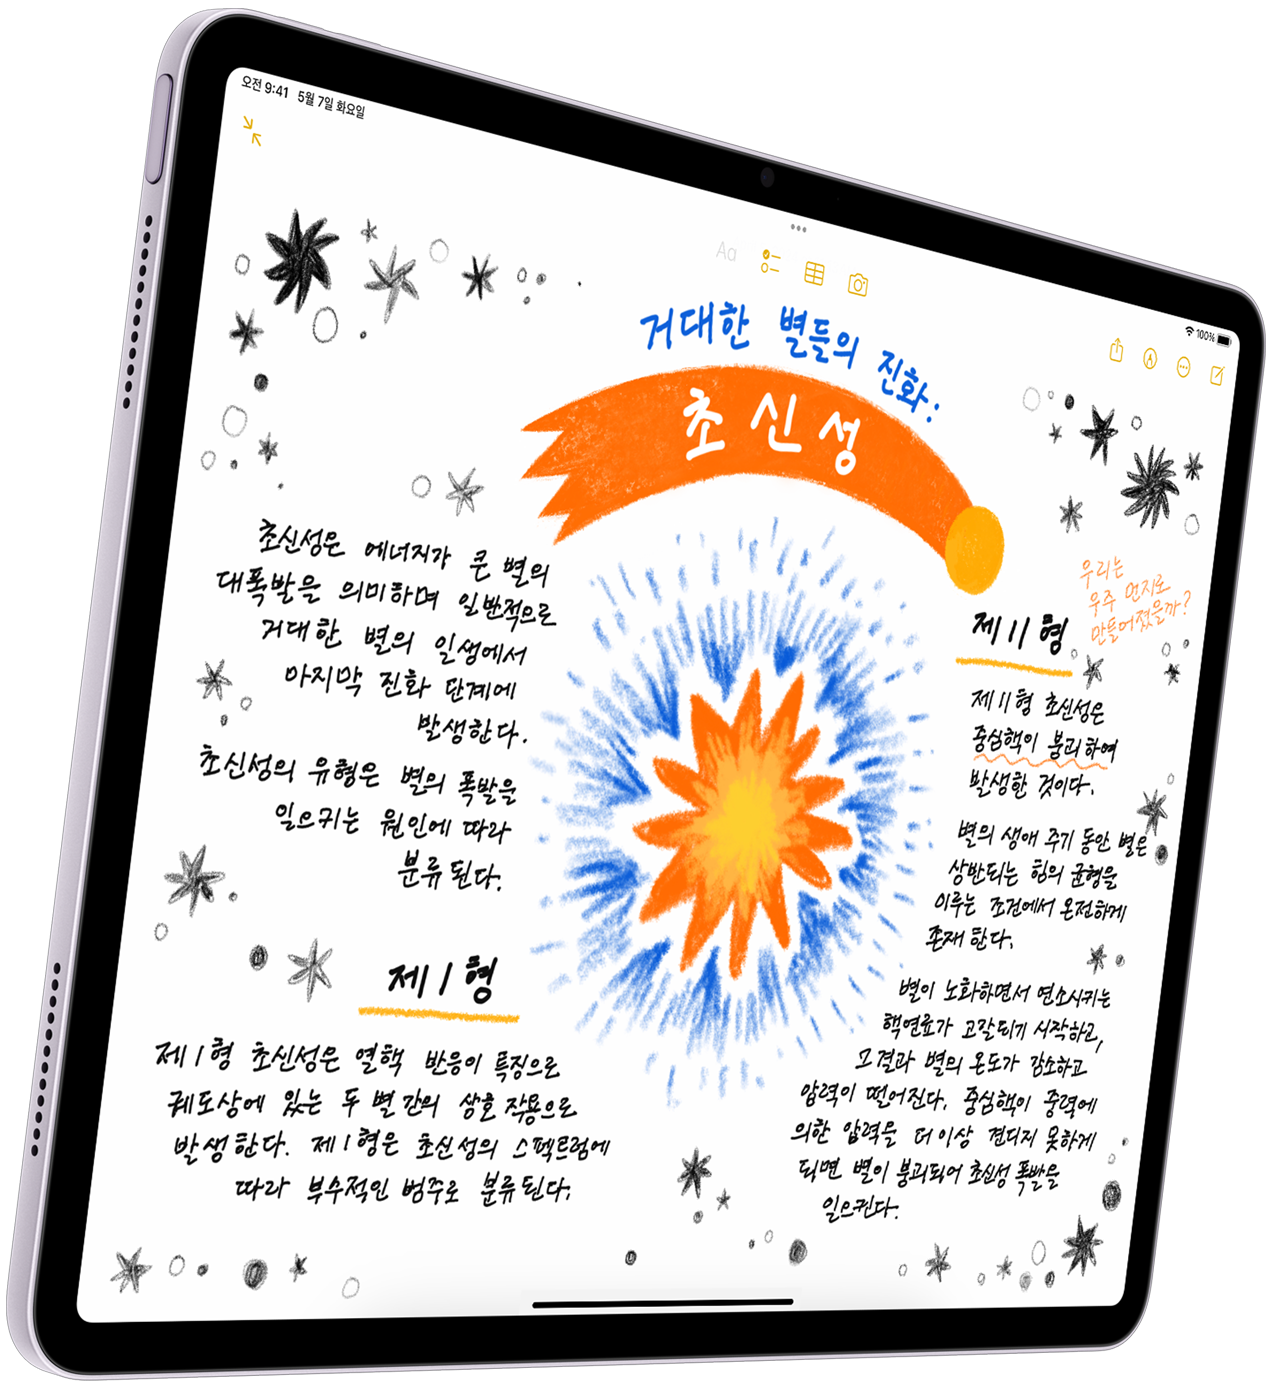 오전 9:41 5월 7일 화요일
100%
Aa
거대한 별들의 진화:
초신성
초신성은 에너지가 큰 별의
대폭발을 의미하며 일반적으로
거대한 별의 일생에서
마지막 진화 단계에
발생한다.
초신성의 유형은 별의 폭발을
일으키는 원인에 따라
분류된다.
제 I 형
제 I 형 초신성은 열핵 반응이 특징으로
궤도상에 있는 두 별 간의 상호 작용으로
발생한다. 제 I 형은 초신성의 스펙트럼에
따라 부수적인 범주로 분류된다.
우리는
우주 먼지로
만들어졌을까?
제 II 형
제 II 형 초신성은
중심핵이 붕괴하여
발생한 것이다.
별의 생애 주기 동안 별은
상반되는 힘의 균형을
이루는 조건에서 온전하게
존재한다.
별이 노화하면서 연소시키는
핵연료가 고갈되기 시작하고,
그 결과 별의 온도가 감소하고
압력이 떨어진다. 중심핵이 중력에
의한 압력을 더 이상 견디지 못하게
되면 별이 붕괴되어 초신성 폭발을
일으킨다.